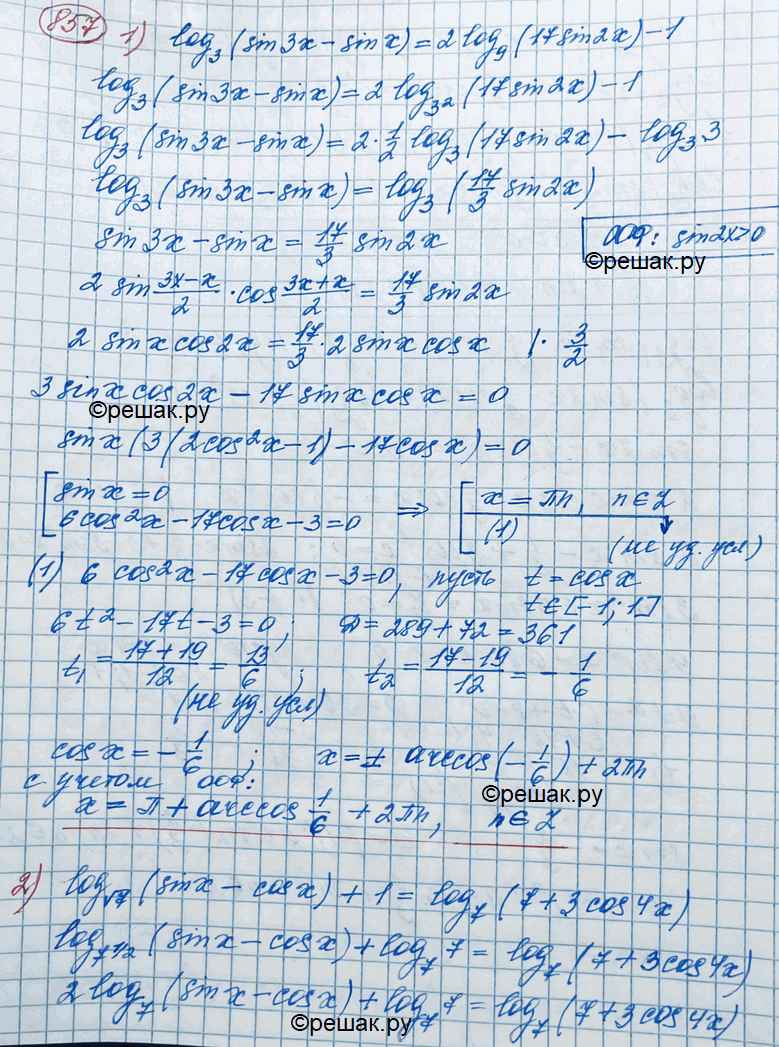 857
1) log₃(sin3x – sinx) = 2 log₉(17sin2x) – 1
log₃(sin3x – sinx) = 2 log₃₂(17sin2x) – 1
log₃(sin3x – sinx) = 2·1/2 log₃(17sin2x) – log₃3
log₃(sin3x – sinx) = log₃(17/3 sin2x)
sin3x – sinx = 17/3 sin2x
ООФ: sin2x>0
©решак.ру
2 sin (3x–x)/2 · cos (3x+x)/2 = 17/3 sin2x
2 sinx cos2x = 17/3 · 2 sinx cosx |· 3/2
3 sinx cos2x – 17 sinx cosx = 0
©решак.ру
sinx(3(2cos²x–1) – 17cosx) = 0
[ sinx = 0 ⇒ [ x = πn, n∈Z
6cos²x – 17cosx – 3 = 0 (1) (не уд. усл)
(1) 6 cos²x – 17cosx – 3 = 0, пусть t = cosx
t∈[–1; 1]
6t² – 17t – 3 = 0; D = 289 + 72 = 361
t₁ = (17+19)/12 = 13/6; t₂ = (17–19)/12 = –1/6
(не уд. усл)
cosx = –1/6; x = ± arccos(–1/6) + 2πn
с учетом ООФ:
©решак.ру
x = π + arccos 1/6 + 2πn, n∈Z
2) log√7(sinx – cosx) + 1 = log₇(7 + 3cos4x)
log₇1/2(sinx – cosx) + log₇7 = log₇(7 + 3cos4x)
2log₇(sinx – cosx) + log₇7 = log₇(7 + 3cos4x)
©решак.ру